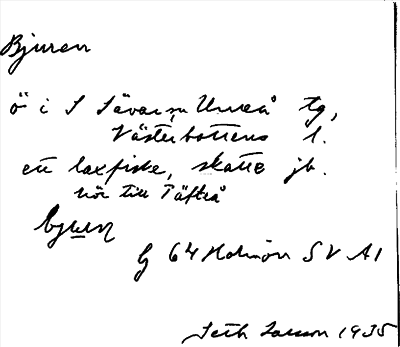 Bjuren
ö i S Sävar sn Umeå tg,
Västerbottens l.
ett laxfiske, skatte jb.
hör till Täfteå
bjuren
G 64 Holmön SV A1
Seth Larsson 1935